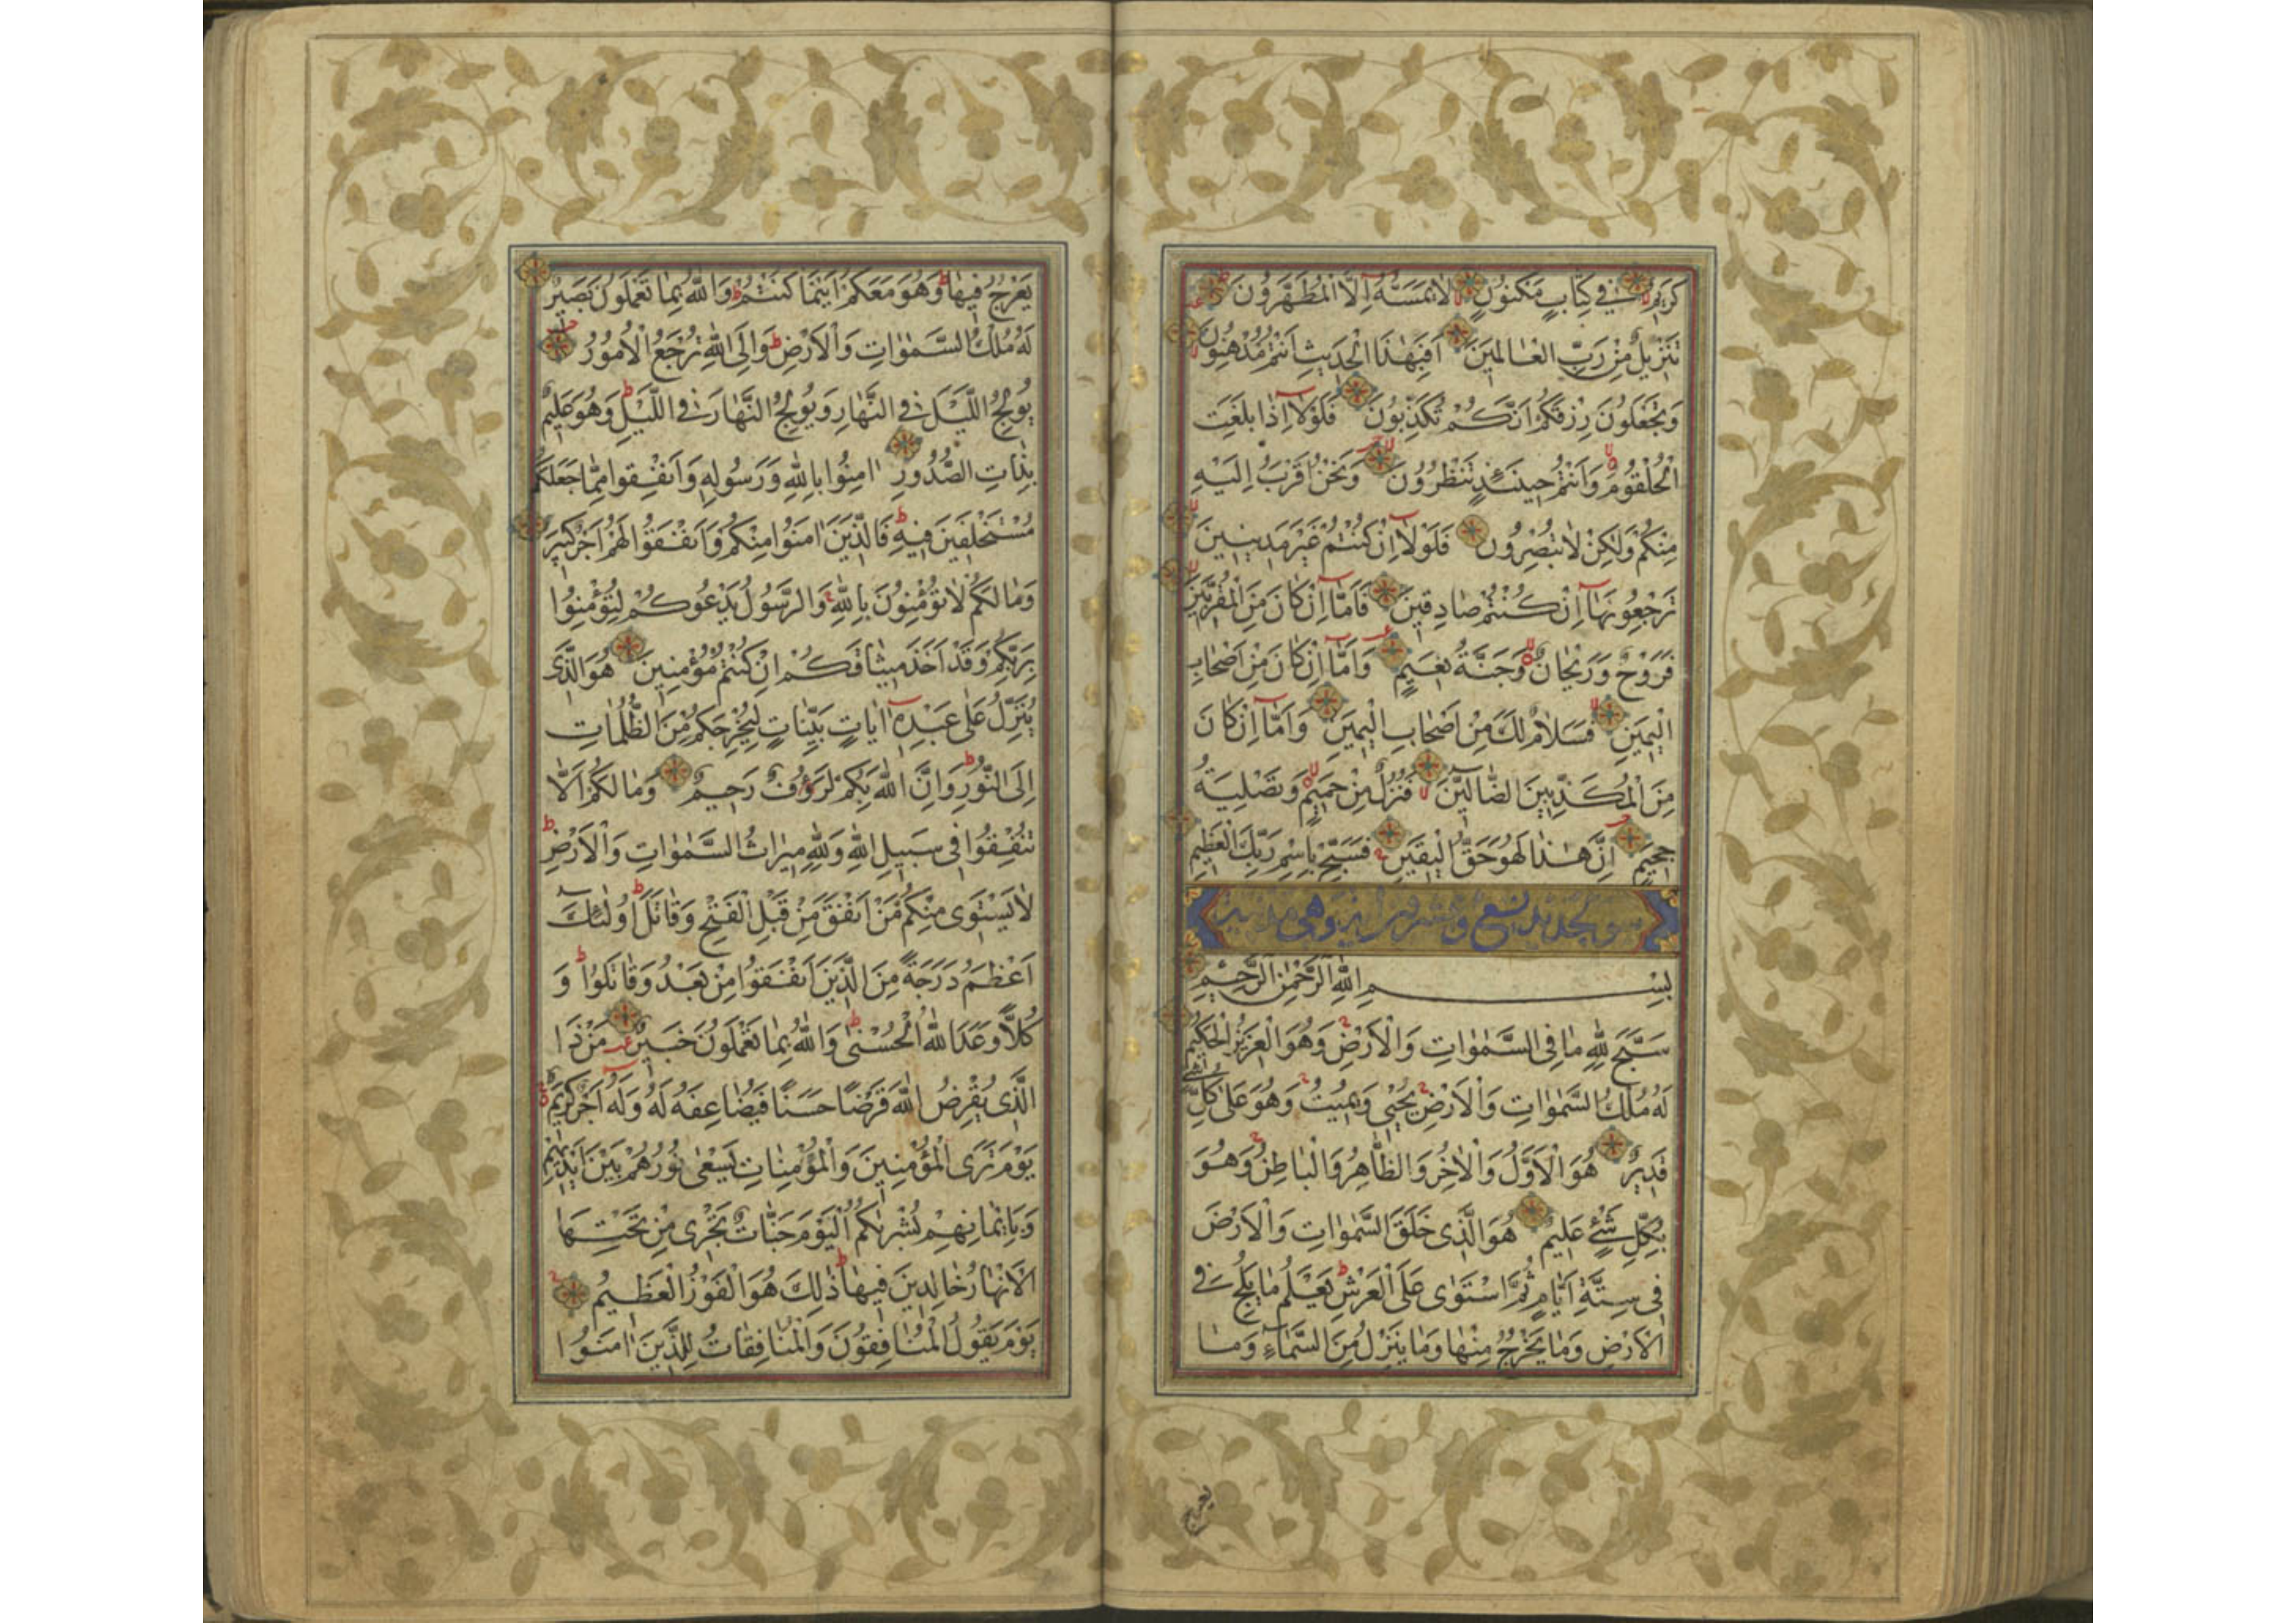 كَرِيمٌ فِي كِتَابٍ مَكْنُونٍ لَا يَمَسُّهُ إِلَّا الْمُطَهَّرُونَ
تَنْزِيلٌ مِنْ رَبِّ الْعَالَمِينَ أَفَبِهَذَا الْحَدِيثِ أَنْتُمْ مُدْهِنُونَ
وَتَجْعَلُونَ رِزْقَكُمْ أَنَّكُمْ تُكَذِّبُونَ فَلَوْلَا إِذَا بَلَغَتِ
الْحُلْقُومَ وَأَنْتُمْ حِينَئِذٍ تَنْظُرُونَ وَنَحْنُ أَقْرَبُ إِلَيْهِ
مِنْكُمْ وَلَكِنْ لَا تُبْصِرُونَ فَلَوْلَا إِنْ كُنْتُمْ غَيْرَ مَدِينِينَ
تَرْجِعُونَهَا إِنْ كُنْتُمْ صَادِقِينَ فَأَمَّا إِنْ كَانَ مِنَ الْمُقَرَّبِينَ
فَرَوْحٌ وَرَيْحَانٌ وَجَنَّةُ نَعِيمٍ وَأَمَّا إِنْ كَانَ مِنْ أَصْحَابِ
الْيَمِينِ فَسَلَامٌ لَكَ مِنْ أَصْحَابِ الْيَمِينِ وَأَمَّا إِنْ كَانَ
مِنَ الْمُكَذِّبِينَ الضَّالِّينَ فَنُزُلٌ مِنْ حَمِيمٍ وَتَصْلِيَةُ
جَحِيمٍ إِنَّ هَذَا لَهُوَ حَقُّ الْيَقِينِ فَسَبِّحْ بِاسْمِ رَبِّكَ الْعَظِيمِ
سورة الحديد تسع وعشرون اية وهي مدنية
بِسْمِ اللَّهِ الرَّحْمَنِ الرَّحِيمِ
سَبَّحَ لِلَّهِ مَا فِي السَّمَوَاتِ وَالْأَرْضِ وَهُوَ الْعَزِيزُ الْحَكِيمُ
لَهُ مُلْكُ السَّمَوَاتِ وَالْأَرْضِ يُحْيِي وَيُمِيتُ وَهُوَ عَلَى كُلِّ شَيْءٍ
قَدِيرٌ هُوَ الْأَوَّلُ وَالْآخِرُ وَالظَّاهِرُ وَالْبَاطِنُ وَهُوَ
بِكُلِّ شَيْءٍ عَلِيمٌ هُوَ الَّذِي خَلَقَ السَّمَوَاتِ وَالْأَرْضَ
فِي سِتَّةِ أَيَّامٍ ثُمَّ اسْتَوَى عَلَى الْعَرْشِ يَعْلَمُ مَا يَلِجُ فِي
الْأَرْضِ وَمَا يَخْرُجُ مِنْهَا وَمَا يَنْزِلُ مِنَ السَّمَاءِ وَمَا
يعرج
يَعْرُجُ فِيهَا وَهُوَ مَعَكُمْ أَيْنَمَا كُنْتُمْ وَاللَّهُ بِمَا تَعْمَلُونَ بَصِيرٌ
لَهُ مُلْكُ السَّمَوَاتِ وَالْأَرْضِ وَإِلَى اللَّهِ تُرْجَعُ الْأُمُورُ
يُولِجُ اللَّيْلَ فِي النَّهَارِ وَيُولِجُ النَّهَارَ فِي اللَّيْلِ وَهُوَ عَلِيمٌ
بِذَاتِ الصُّدُورِ آمِنُوا بِاللَّهِ وَرَسُولِهِ وَأَنْفِقُوا مِمَّا جَعَلَكُمْ
مُسْتَخْلَفِينَ فِيهِ فَالَّذِينَ آمَنُوا مِنْكُمْ وَأَنْفَقُوا لَهُمْ أَجْرٌ كَبِيرٌ
وَمَا لَكُمْ لَا تُؤْمِنُونَ بِاللَّهِ وَالرَّسُولُ يَدْعُوكُمْ لِتُؤْمِنُوا
بِرَبِّكُمْ وَقَدْ أَخَذَ مِيثَاقَكُمْ إِنْ كُنْتُمْ مُؤْمِنِينَ هُوَ الَّذِي
يُنَزِّلُ عَلَى عَبْدِهِ آيَاتٍ بَيِّنَاتٍ لِيُخْرِجَكُمْ مِنَ الظُّلُمَاتِ
إِلَى النُّورِ وَإِنَّ اللَّهَ بِكُمْ لَرَؤُفٌ رَحِيمٌ وَمَا لَكُمْ أَلَّا
تُنْفِقُوا فِي سَبِيلِ اللَّهِ وَلِلَّهِ مِيرَاثُ السَّمَوَاتِ وَالْأَرْضِ
لَا يَسْتَوِي مِنْكُمْ مَنْ أَنْفَقَ مِنْ قَبْلِ الْفَتْحِ وَقَاتَلَ أُولَئِكَ
أَعْظَمُ دَرَجَةً مِنَ الَّذِينَ أَنْفَقُوا مِنْ بَعْدُ وَقَاتَلُوا وَ
كُلًّا وَعَدَ اللَّهُ الْحُسْنَى وَاللَّهُ بِمَا تَعْمَلُونَ خَبِيرٌ مَنْ ذَا
الَّذِي يُقْرِضُ اللَّهَ قَرْضًا حَسَنًا فَيُضَاعِفَهُ لَهُ وَلَهُ أَجْرٌ كَرِيمٌ
يَوْمَ تَرَى الْمُؤْمِنِينَ وَالْمُؤْمِنَاتِ يَسْعَى نُورُهُمْ بَيْنَ أَيْدِيهِمْ
وَبِأَيْمَانِهِمْ بُشْرَاكُمُ الْيَوْمَ جَنَّاتٌ تَجْرِي مِنْ تَحْتِهَا
الْأَنْهَارُ خَالِدِينَ فِيهَا ذَلِكَ هُوَ الْفَوْزُ الْعَظِيمُ
يَوْمَ يَقُولُ الْمُنَافِقُونَ وَالْمُنَافِقَاتُ لِلَّذِينَ آمَنُوا